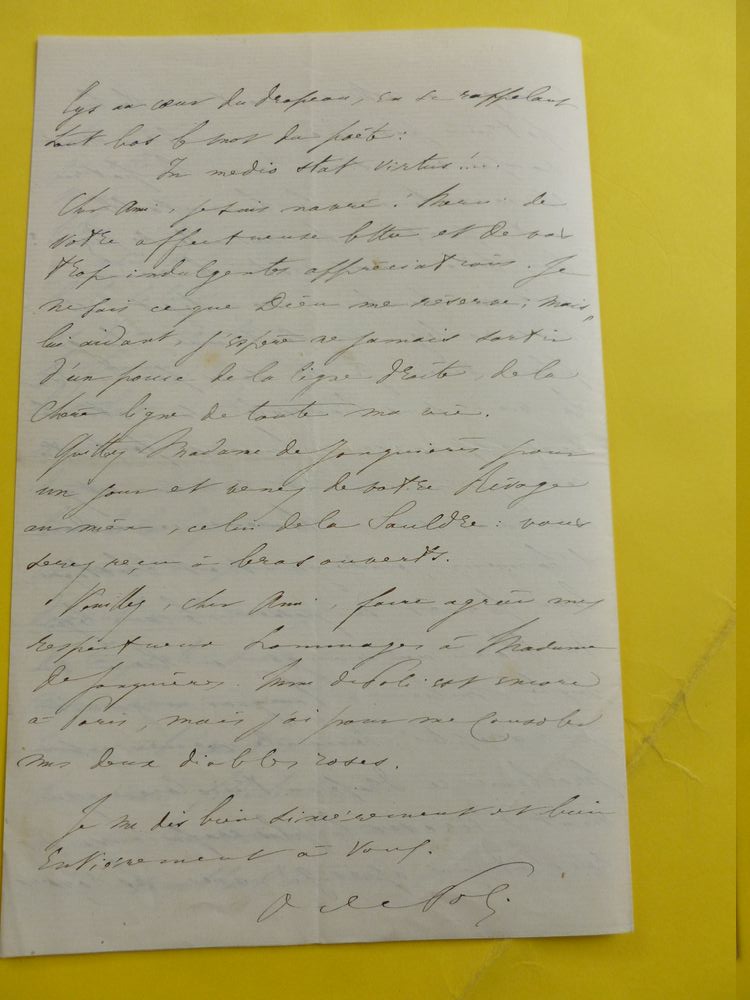 lys au cœur du drapeau, en se rappelant
tout bas le mot du poëte :
In medio stat virtus !...
Cher Ami, je suis navré ! Merci de
votre affectueuse lettre et de vos
trop indulgentes appréciations. Je
ne sais ce que Dieu me réserve ; mais,
lui aidant, j'espère ne jamais sortir
d'un pouce de la ligne droite, de la
chère ligne de toute ma vie.
Quittez Madame de Jonquières pour
un jour et venez de votre Rivage
au mien, celui de la Sauldre : vous
serez reçu à bras ouverts.
Veuillez, cher Ami, faire agréer mes
respectueux hommages à Madame
de Jonquières. Mme de Poli est encore
à Paris, mais j'ai pour me consoler
mes deux diables roses.
Je me dis bien sincèrement et bien
Entièrement à Vous.
O de Poli